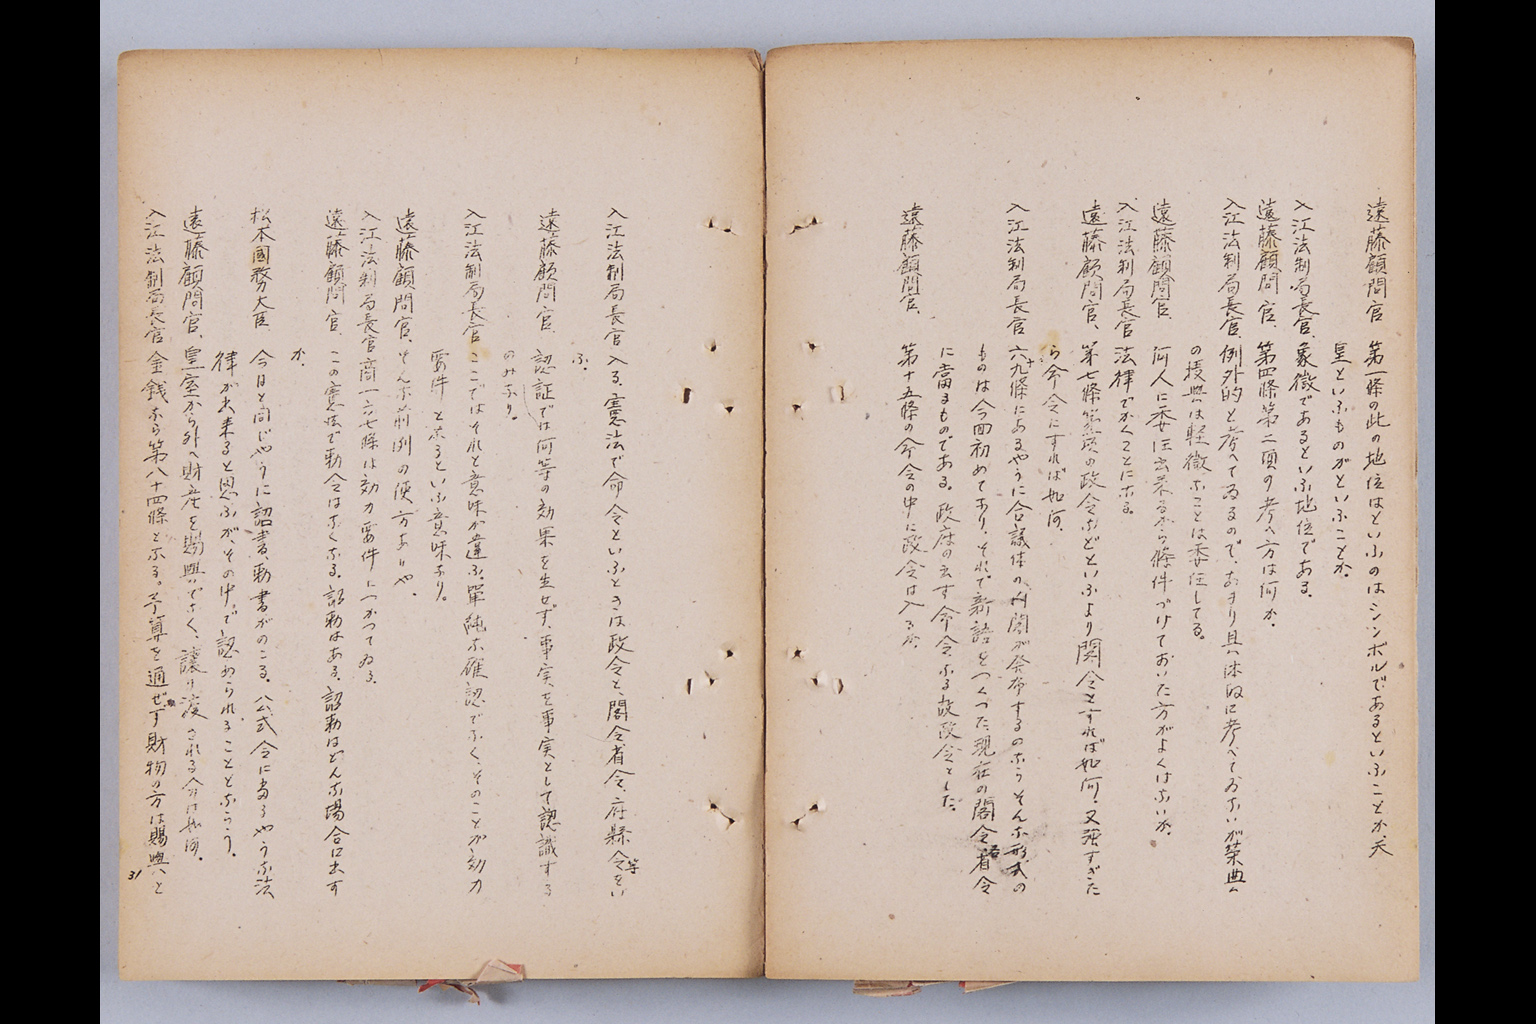 遠藤顧問官 第一條の此の地位はといふのはシンボルであるといふことか、天
皇といふものがといふことか。
入江法制局長官、象徴であるといふ地位である。
遠藤顧問官、第四條第二項の考へ方は何か。
入江法制局長官、例外的と考へてゐるので、あまり具体的に考へておらないが栄典
の授与は軽微なことは委任してる。
遠藤顧問官、何人に委任出来るから條件づけておいた方がよくはないか。
入江法制局長官 法律でかくことになる。
遠藤顧問官、第七條 の政令などといふより閣令とすれば如何。又強すぎた
ら命令にすれば如何。
入江法制局長官 六十九條にあるやうに合議体の内閣が発布するのならそんな形式の
ものは今回初めてあり、それで新語をつくつた現在の閣令省令
に當るものである。政府の出す命令なる故政令とした。
遠藤顧問官、第十五條の命令の中に政令は入るか、
入江法制局長官 入る、憲法で命令といふときは政令と、閣令省令、府縣令等をい
ふ。
遠藤顧問官、認証では何等の効果を生せず、事実を事実として認識する
のみなり。
入江法制局長官 ここではそれと意味が違ふ。單純な確認でなく、そのことが効力
要件となるといふ意味なり。
遠藤顧問官、そんな前例の使方ありや、
入江法制局長官 商一六七條は効力要件につかつてゐる。
遠藤顧問官、この憲法で勅令はなくなる。詔勅はある、詔勅はどんな場合に出す
か、
松本國務大臣、今日と同じやうに詔書、勅書がのこる。公式令に當るやうな法
律が出来ると思ふがその中で認められることとならう。
遠藤顧問官、皇室から外へ財産を賜与でなく、譲り渡される分は如何。
入江法制局長官 金銭なら第八十四條となる。予算を通ぜず財物の方は賜与と
31